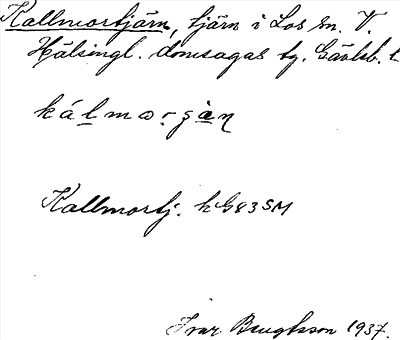 Kallmortjärn, tjärn i Los sn. V.
Hälsingl. domsagas tg. Gävleb. l.
kálmorgàn
Kallmortj. k G83SM
Ivar Bengtsson 1937.